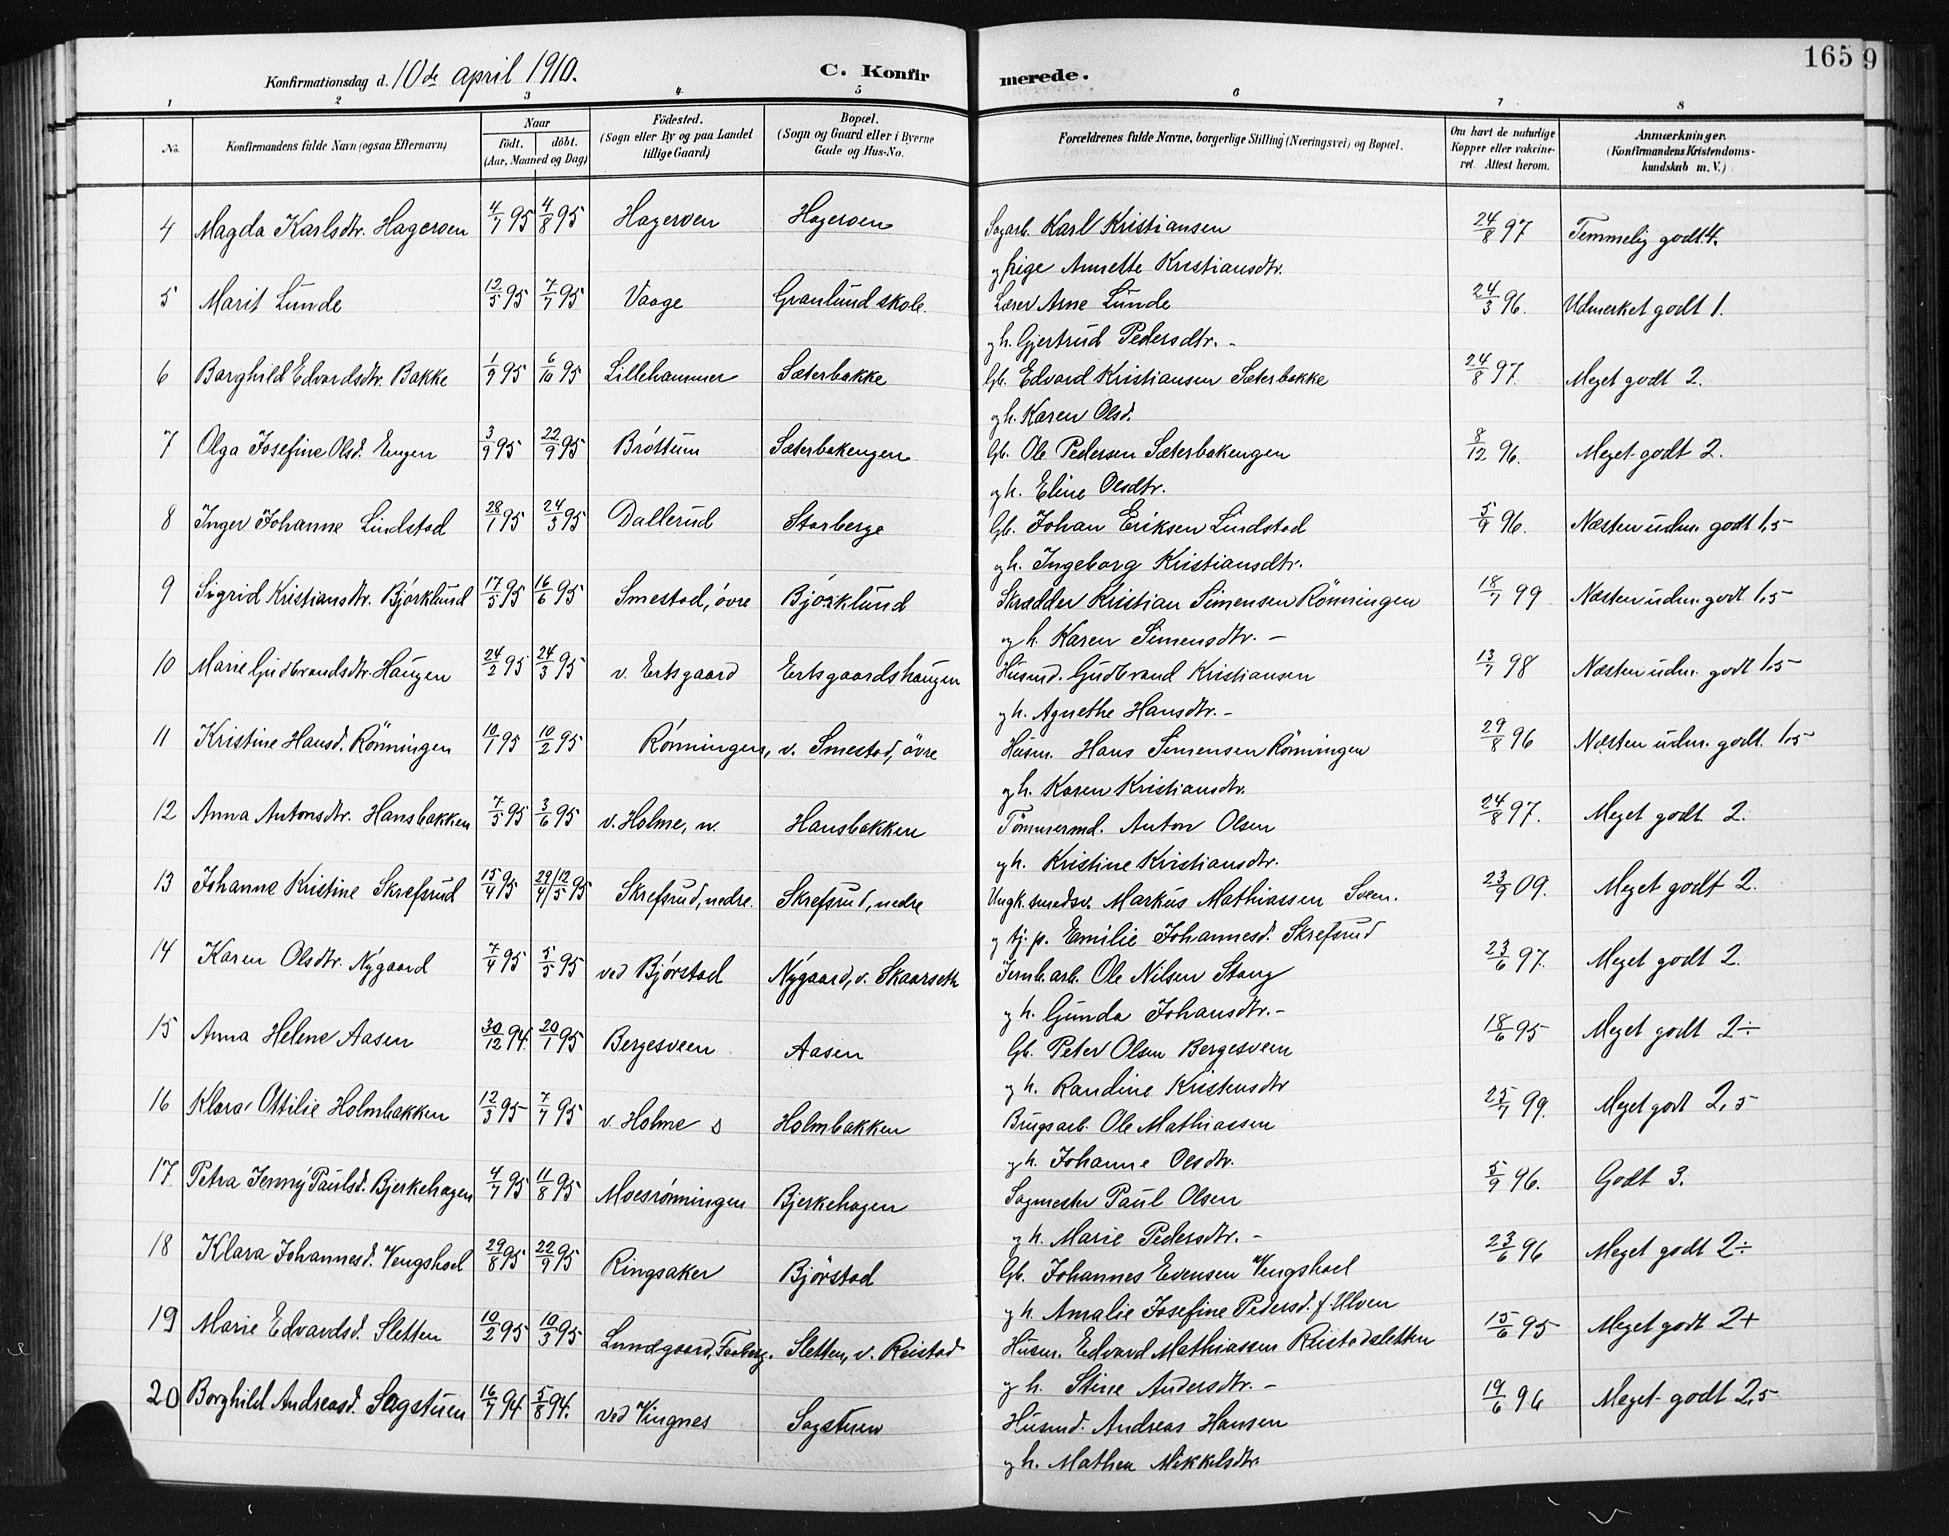 165 9
Konfirmationsdag d. 10de april 1910. C. Konfirmerede.
1 2 3 4 5 6 7 8
No. Konfirmandens fulde Navn (ogsaa Efternavn) Naar födt. döbt. (Aar, Maaned og Dag) Födested. (Sogn eller By og paa Landet tillige Gaard) Bopæl. (Sogn og Gaard eller i Byerne Gade og Hus-No. Forældrenes fulde Navne, borgerlige Stilling (Næringsvei) og Bopæl. Om havt de naturlige Kopper eller vakcineret. Attest herom. Anmærkninger. (Konfirmandens Kristendomskundskab m. V.)
4 Magda Karlsdtr. Hageroen 4/7 95 4/8 95 Hageroen Hageroen Sagarb. Karl Kristiansen 24/8 97 Temmelig godt 4.
og pige Annette Kristiansdtr.
5 Marit Lunde 12/5 95 7/7 95 Vaage Granlund skole. Lærer Arne Lunde 24/3 96. Udmerket godt 1.
og h. Gjertrud Pedersdtr. -
6 Borghild Edvardsdtr. Bakke 1/9 95 6/10 95 Lillehammer Sæterbakke Gb. Edvard Kristiansen Sæterbakke 24/8 97. Meget godt 2.
og h. Karen Olsd.
7 Olga Josefine Olsd. Engen 3/9 95 22/9 95 Bröttum Sæterbakengen Gb. Ole Pedersen Sæterbakengen 8/12 96. Meget godt 2.
og h. Eline Olsdtr.
8 Inger Johanne Lindstad 28/1 95 24/3 95 Dallerud Storberge Gb. Johan Eriksen Lindstad 5/9 96. Næsten udm. godt 1,5
og h. Ingeborg Kristiansdtr.
9 Sigrid Kristiansdtr. Björklund 17/5 95 16/6 95 Smestad, övre Björklund Skrædder Kristian Simensen Rönningen 18/7 99 Næsten udm. godt 1,5
og h. Karen Simensdtr. -
10 Marie Gudbrandsdtr. Haugen 24/2 95 24/3 95 v. Ertsgaard Ertsgaardshaugen Husmd. Gudbrand Kristiansen 13/7 98 Næsten udm. godt 1,5
og h. Agnethe Hansdtr. -
11 Kristine Hansd. Rönningen 10/1 95 10/2 95 Rönningen, v. Smestad, övre Husm. Hans Simensen Rönningen 29/8 96 Næsten udm. godt. 1,5
og h. Karen Kristiansdtr.
12 Anna Antonsdtr. Hansbakken 7/5 95 3/6 95 v. Holme, n. Hansbakken Tömmermd. Anton Olsen 24/8 97. Meget godt 2.
og h. Kristine Kristiansdtr.
13 Johanne Kristine Skrefsrud 15/4 95 29/4 / 12/5 95 Skrefsrud, nedre. Skrefsrud, nedre Ungk. smedsv. Markus Mathiassen Sveen. 23/9 09. Meget godt 2.
og tj. p. Emilie Johannesd. Skrefsrud
14 Karen Olsdtr. Nygaard 7/4 95 5/5 95 ved Björstad Nygaard, v. Skaarseth Jernb. arb. Ole Nilsen Stang 23/6 97. Meget godt 2.
og h. Gunda Johansdtr. -
15 Anna Helene Aasen 30/12 94. 20/1 95 Bergesveen Aasen Gb. Peter Olsen Bergesveen 18/6 95 Meget godt 2÷
og h. Randine Kristensdtr
16 Klara Ottilie Holmbakken 12/3 95 7/7 95 v. Holme s Holmbakken Brugsarb. Ole Mathiassen 25/7 99. Meget godt 2,5
og h. Johanne Olsdtr.
17 Petra Jenny Paulsd. Bjerkehagen 4/7 95 11/8 95 Moesrönningen Bjerkehagen Sagmester Paul Olsen 5/9 96. Godt 3.
og h. Marie Pedersdtr. -
18 Klara Johannesd. Vengshoel 29/8 95 22/9 95 Ringsaker Björstad Gb. Johannes Evensen Vengshoel 23/6 96 Meget godt 2÷
og h. Amalie Josefine Pedersd. f. Ulven
19 Marie Edvardsd. Sletten 10/2 95 10/3 95 Lundgaard, Faaberg. Sletten, v. Reistad Husm. Edvard Mathiassen Reistadsletten 15/6 95 Meget godt 2+
og h. Stine Andersdtr. -
20 Borghild Andreasd. Sagstuen 16/7 94 5/8 94. ved Vingnes Sagstuen Husmd. Andreas Hansen 19/6 96 Meget godt 2,5
og h. Mathea Mikkelsdtr.